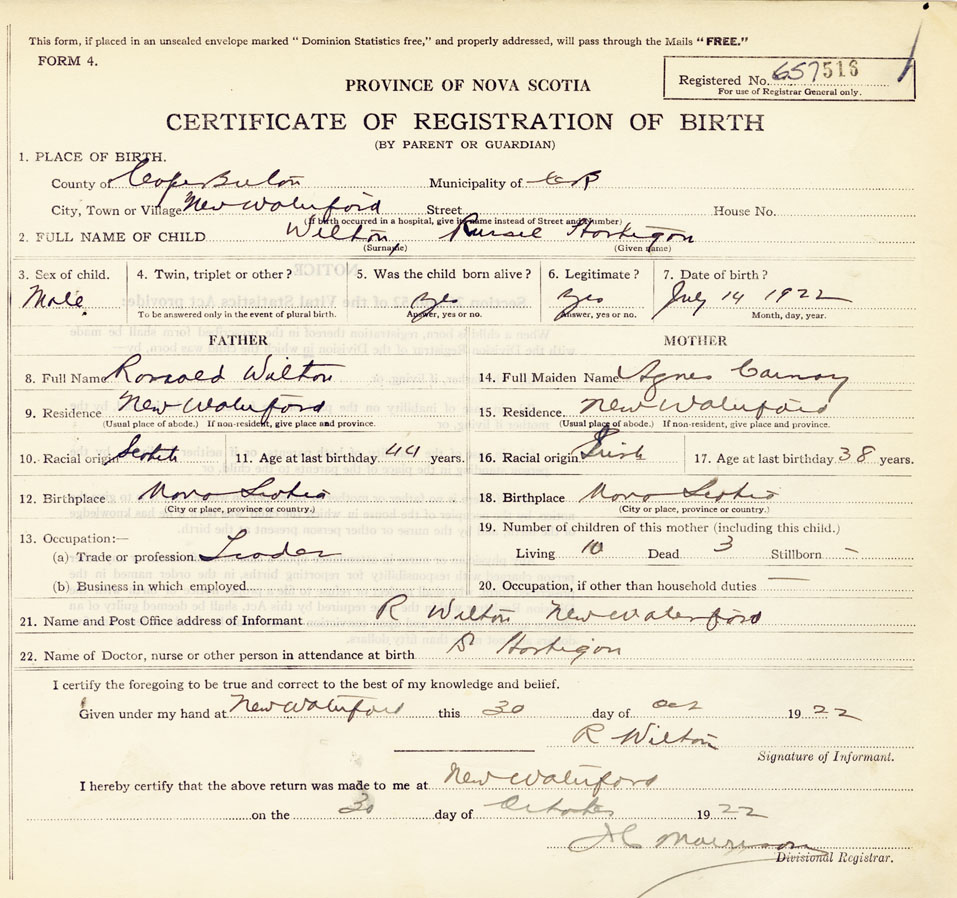 This form, if placed in an unsealed envelope marked "Dominion Statistics free," and properly addressed, will pass through the Mails "FREE."
FORM 4.
Registered No. 657516
For use of Registrar General only.
PROVINCE OF NOVA SCOTIA
CERTIFICATE OF REGISTRATION OF BIRTH
(BY PARENT OR GUARDIAN)
1. PLACE OF BIRTH.
County of Cape Breton Municipality of C B
City, Town or Village New Waterford Street House No.
(If birth occurred in a hospital, give its name instead of Street and Number)
2. FULL NAME OF CHILD Wilton Russel Hartigan
(Surname) (Given name)
3. Sex of child. 4. Twin, triplet or other? 5. Was the child born alive? 6. Legitimate? 7. Date of birth?
Male Yes Yes July 14 1922
To be answered only in the event of plural birth. Answer, yes or no. Answer, yes or no. Month, day, year.
FATHER MOTHER
8. Full Name Ronald Wilton 14. Full Maiden Name Agnes
9. Residence New Waterford 15. Residence. New Waterford
(Usual place of abode.) If non-resident, give place and province. (Usual place of abode.) If non-resident, give place and province.
10. Racial origin Scotch 11. Age at last birthday 44 years. 16. Racial origin Irish 17. Age at last birthday 38 years.
12. Birthplace Nova Scotia 18. Birthplace Nova Scotia
(City or place, province or country.) (City or place, province or country.)
13. Occupation:— 19. Number of children of this mother (including this child.)
(a) Trade or profession Living 10 Dead 3 Stillborn –
(b) Business in which employed 20. Occupation, if other than household duties —
21. Name and Post Office address of Informant R Wilton New Waterford
22. Name of Doctor, nurse or other person in attendance at birth Dr Hartigan
I certify the foregoing to be true and correct to the best of my knowledge and belief.
Given under my hand at New Waterford this 30 day of Oct 1922
R Wilton
Signature of Informant.
I hereby certify that the above return was made to me at New Waterford
on the 30 day of October 1922
Morrison
Divisional Registrar.